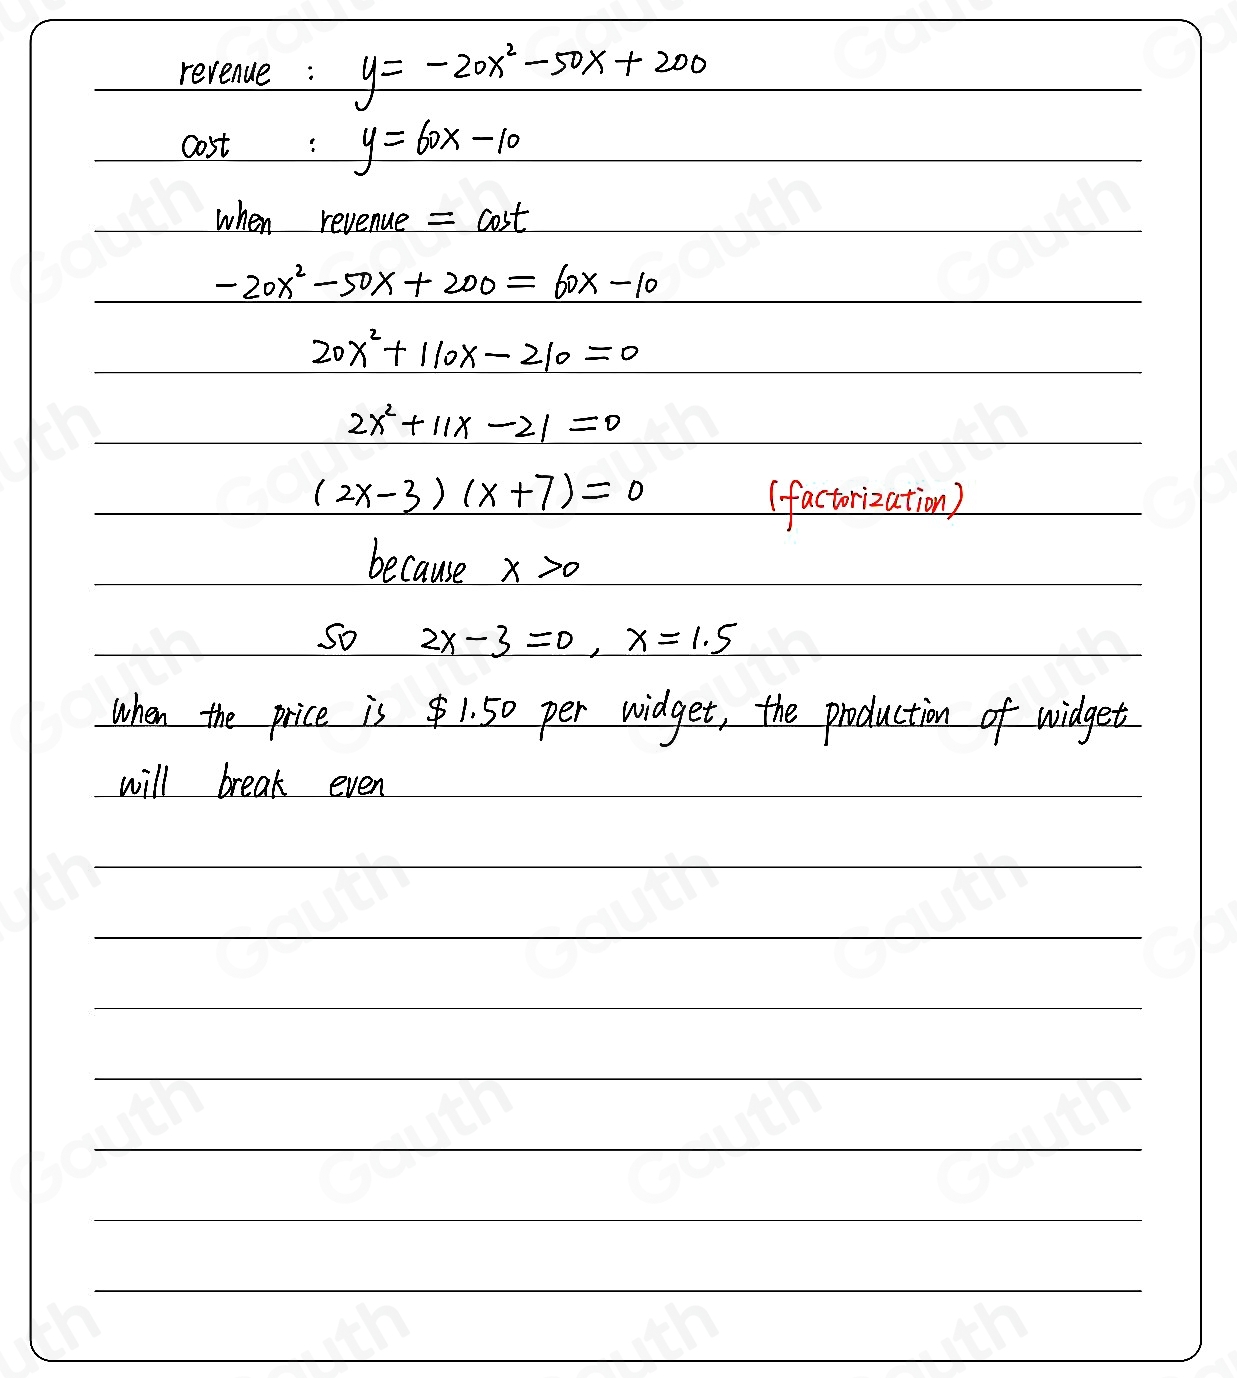 revenue : y = -20x² - 50x + 200
cost : y = 60x - 10
when revenue = cost
-20x² - 50x + 200 = 60x - 10
20x² + 110x - 210 = 0
2x² + 11x - 21 = 0
(2x - 3)(x + 7) = 0 (factorization)
because x > 0
so 2x - 3 = 0, x = 1.5
When the price is $1.50 per widget, the production of widget
will break even